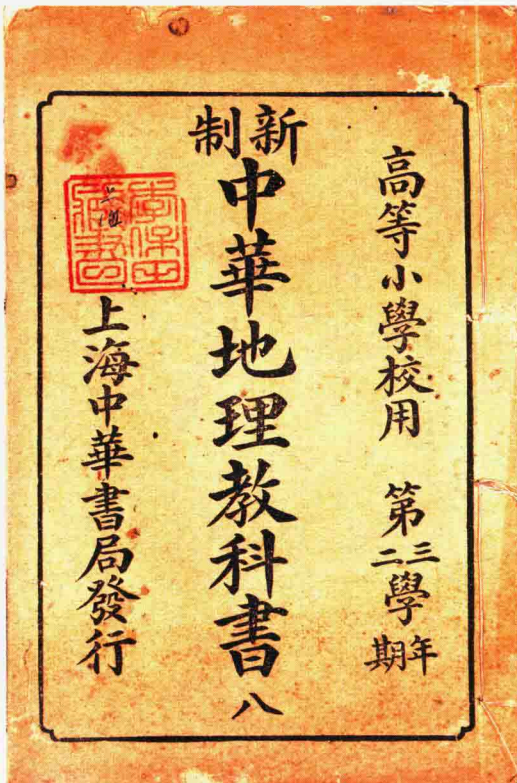 高等小學校用 第三二學年期
新制
中華地理教科書 八
上海中華書局發行